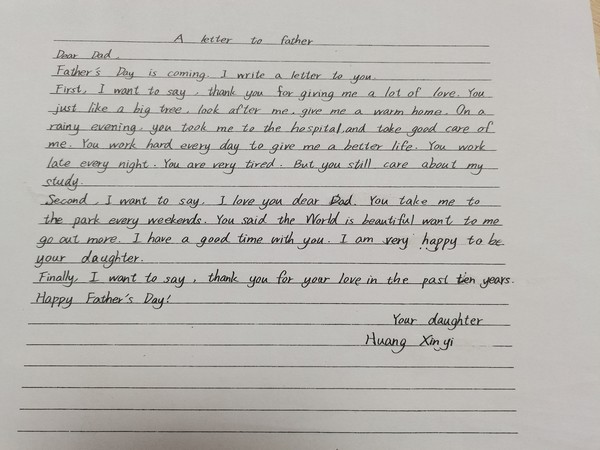 A letter to father
Dear Dad,
Father's Day is coming. I write a letter to you.
First, I want to say, thank you for giving me a lot of love. You
just like a big tree, look after me, give me a warm home. On a
rainy evening, you took me to the hospital, and take good care of
me. You work hard every day to give me a better life. You work
late every night. You are very tired. But you still care about my
study.
Second, I want to say, I love you dear Dad. You take me to
the park every weekends. You said the World is beautiful want to me
go out more. I have a good time with you. I am very happy to be
your daughter.
Finally, I want to say, thank you for your love in the past ten years.
Happy Father's Day!
Your daughter
Huang Xinyi